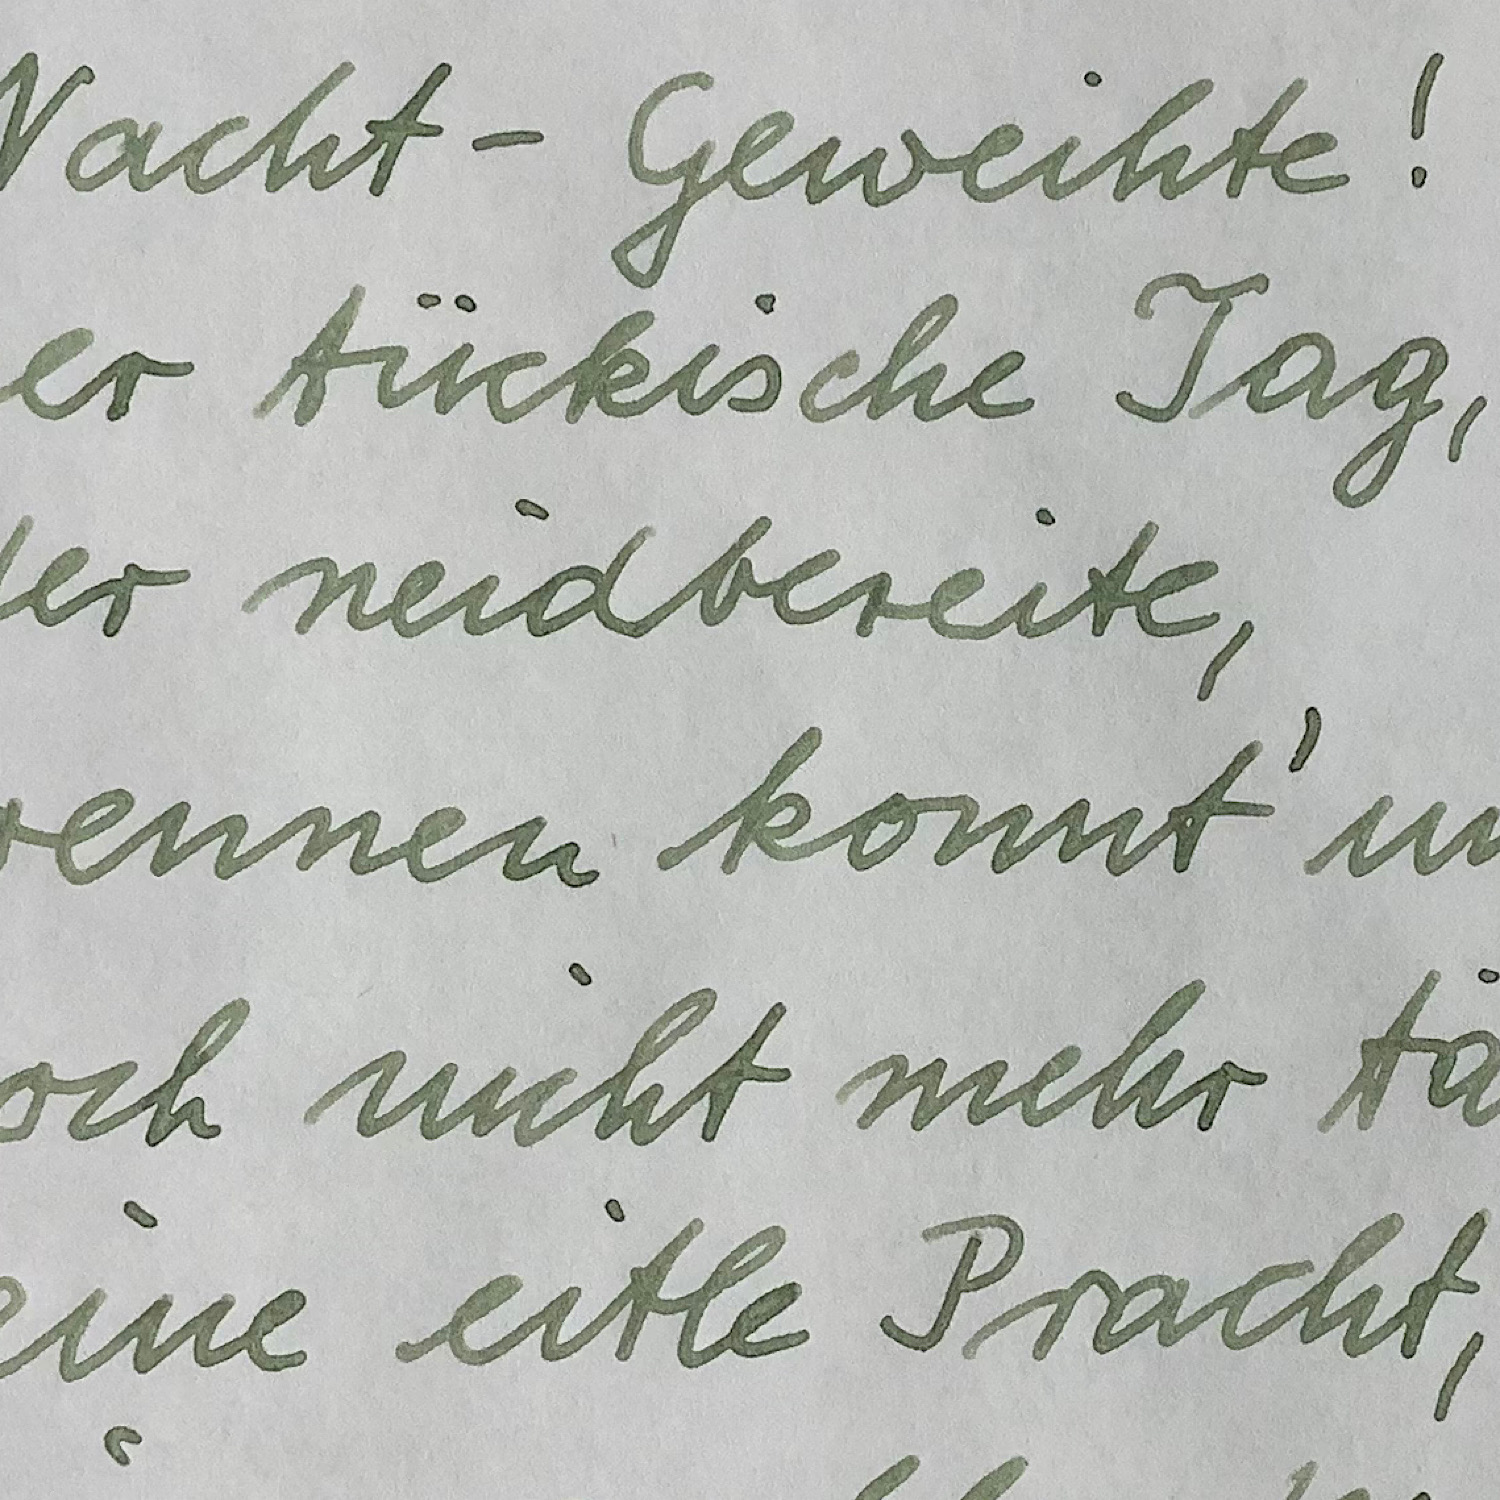 Nacht-Geweihte!
er tückische Tag,
der neidbereite,
rennen konnt' un
och nicht mehr tä
eine eitle Pracht,